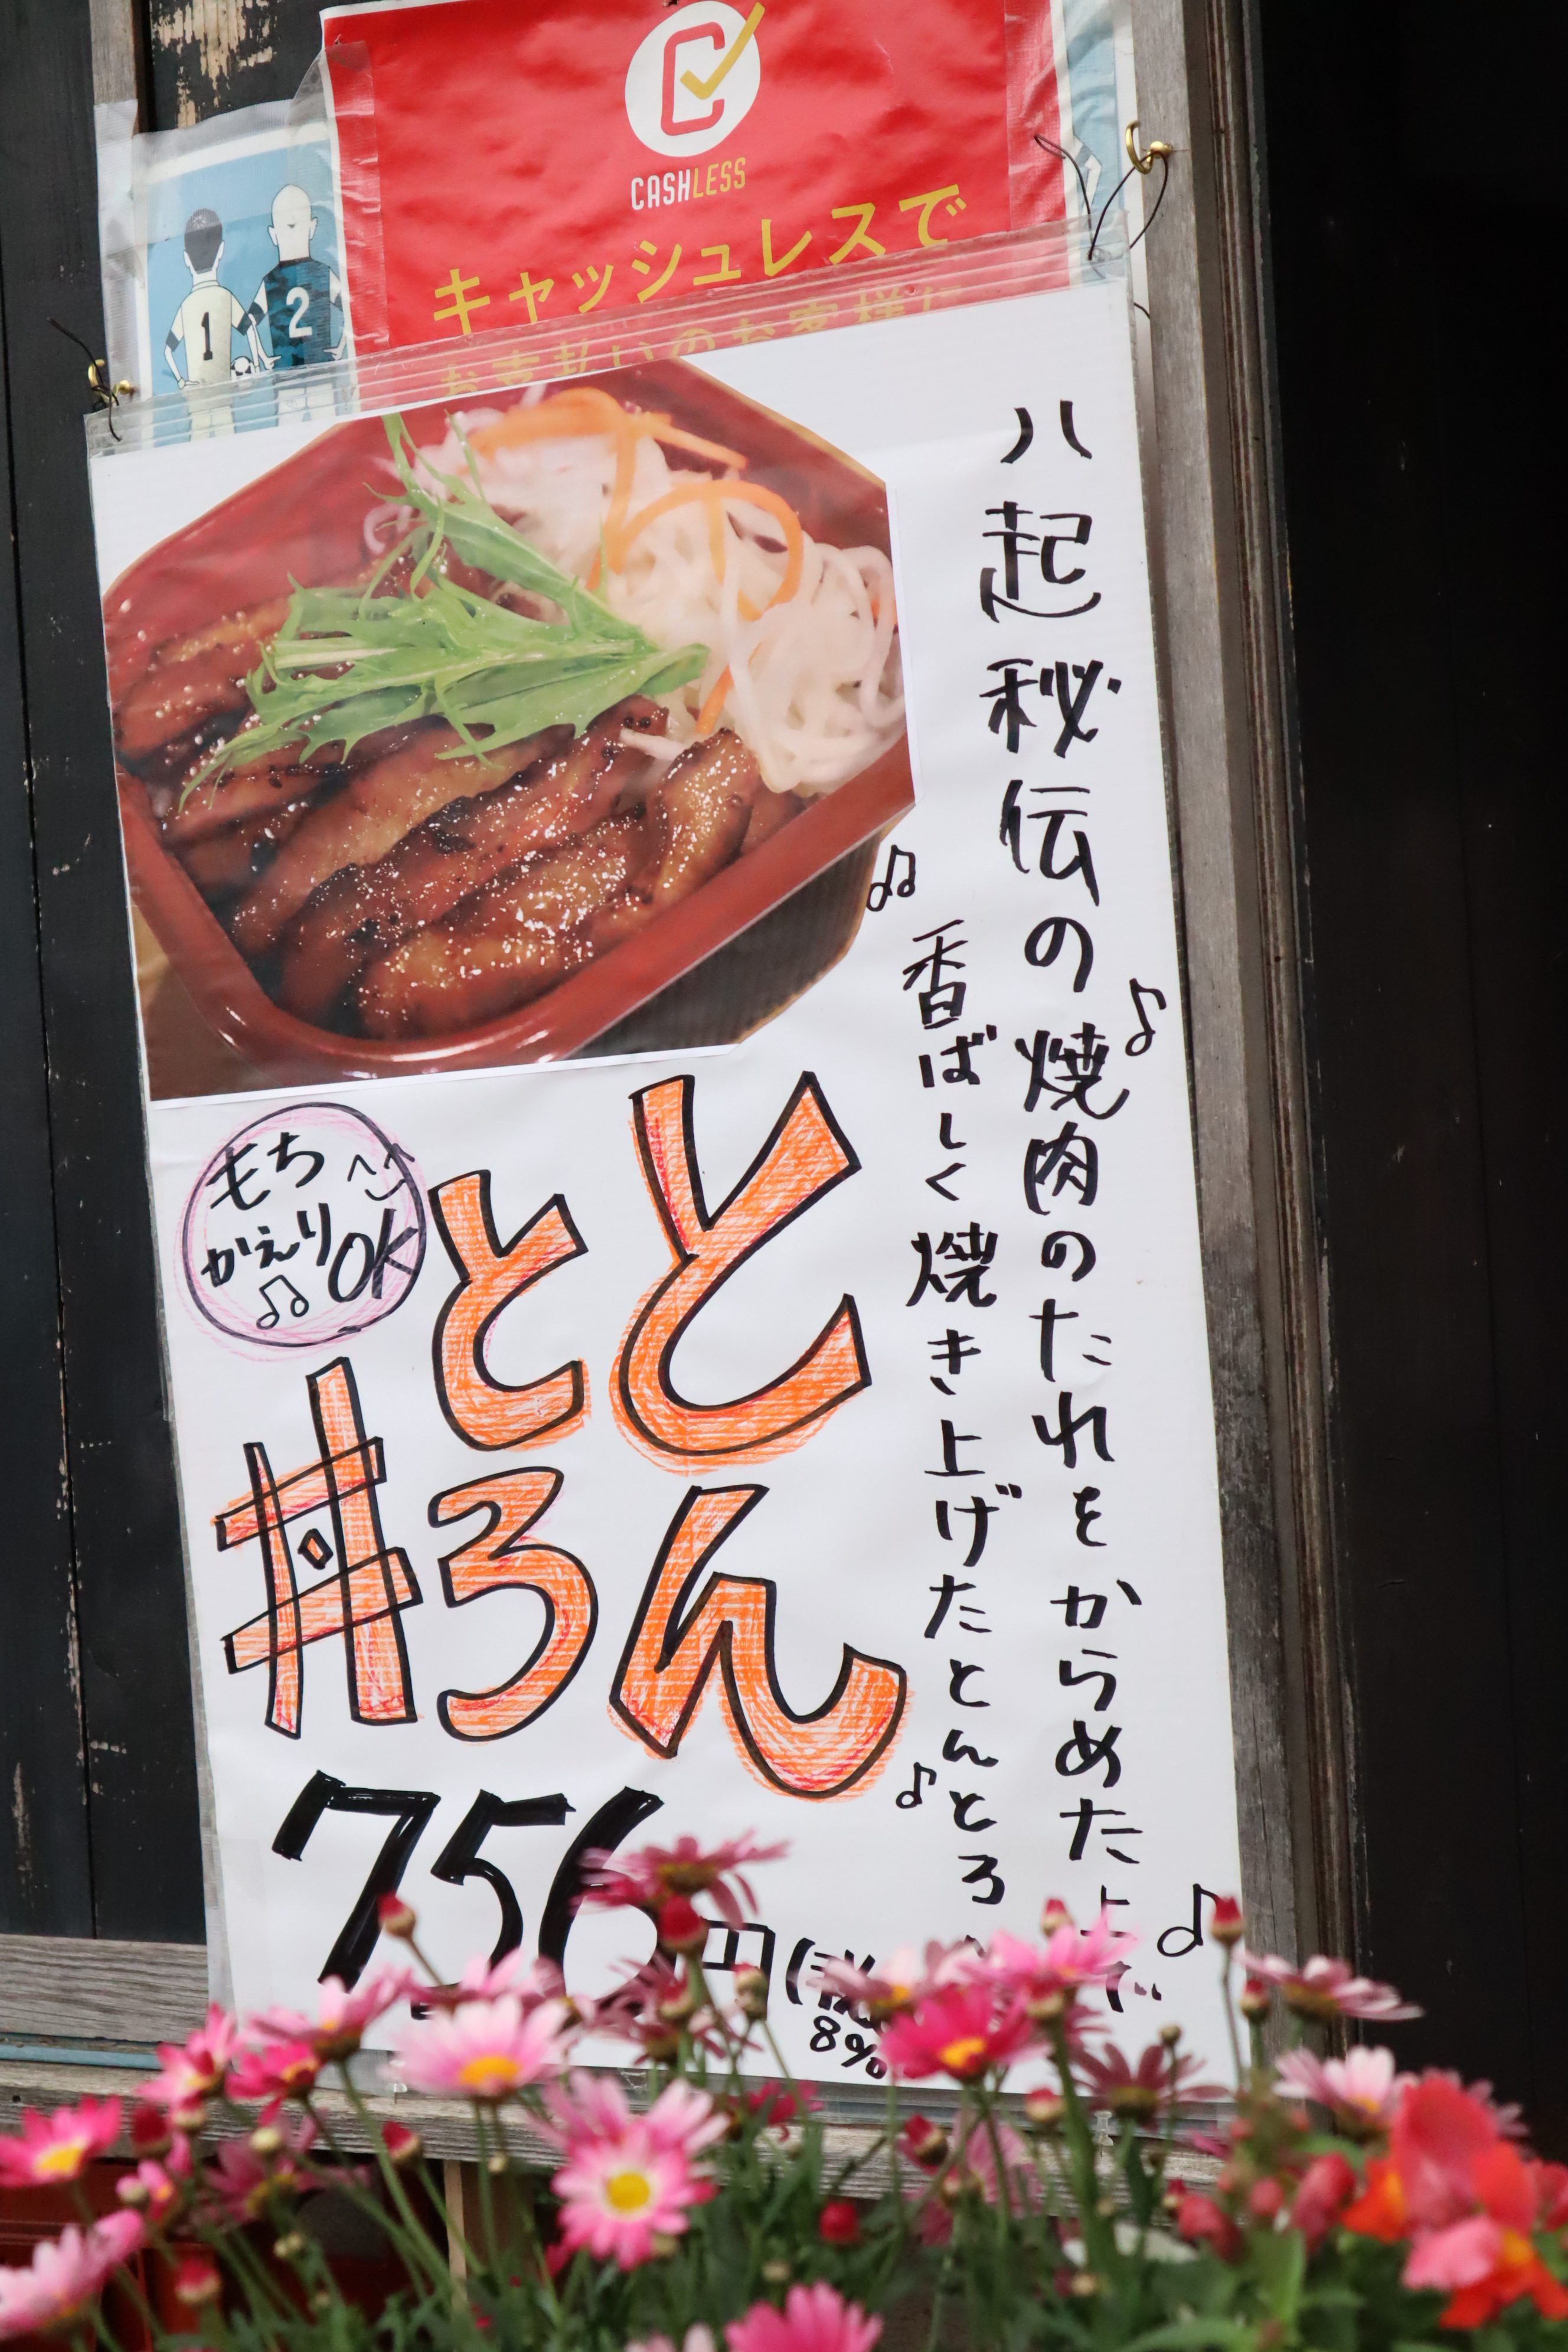 CASHLESS
キャッシュレスで
お支払いのお客様に
1
2
八起秘伝の焼肉のたれをからめた
香ばしく焼き上げたとんとろ
とん
とろ
丼
もち
かえり
OK
756円(税
8%